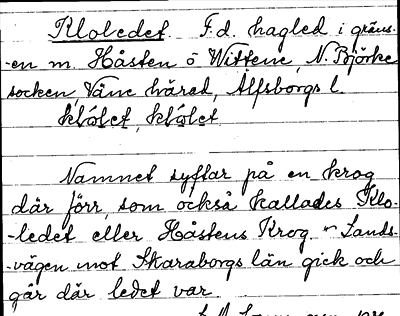 Kloledet. F.d. hagled i gräns-
-en m. Håsten ö Wittene, N. Björke
socken, Väne härad, Älfsborgs l.
klólet, klólet
Namnet syftar på en krog
där förr, som också kallades Klo-
-ledet eller Håstens Krog. Lands-
-vägen mot Skaraborgs län gick och
går där ledet var.